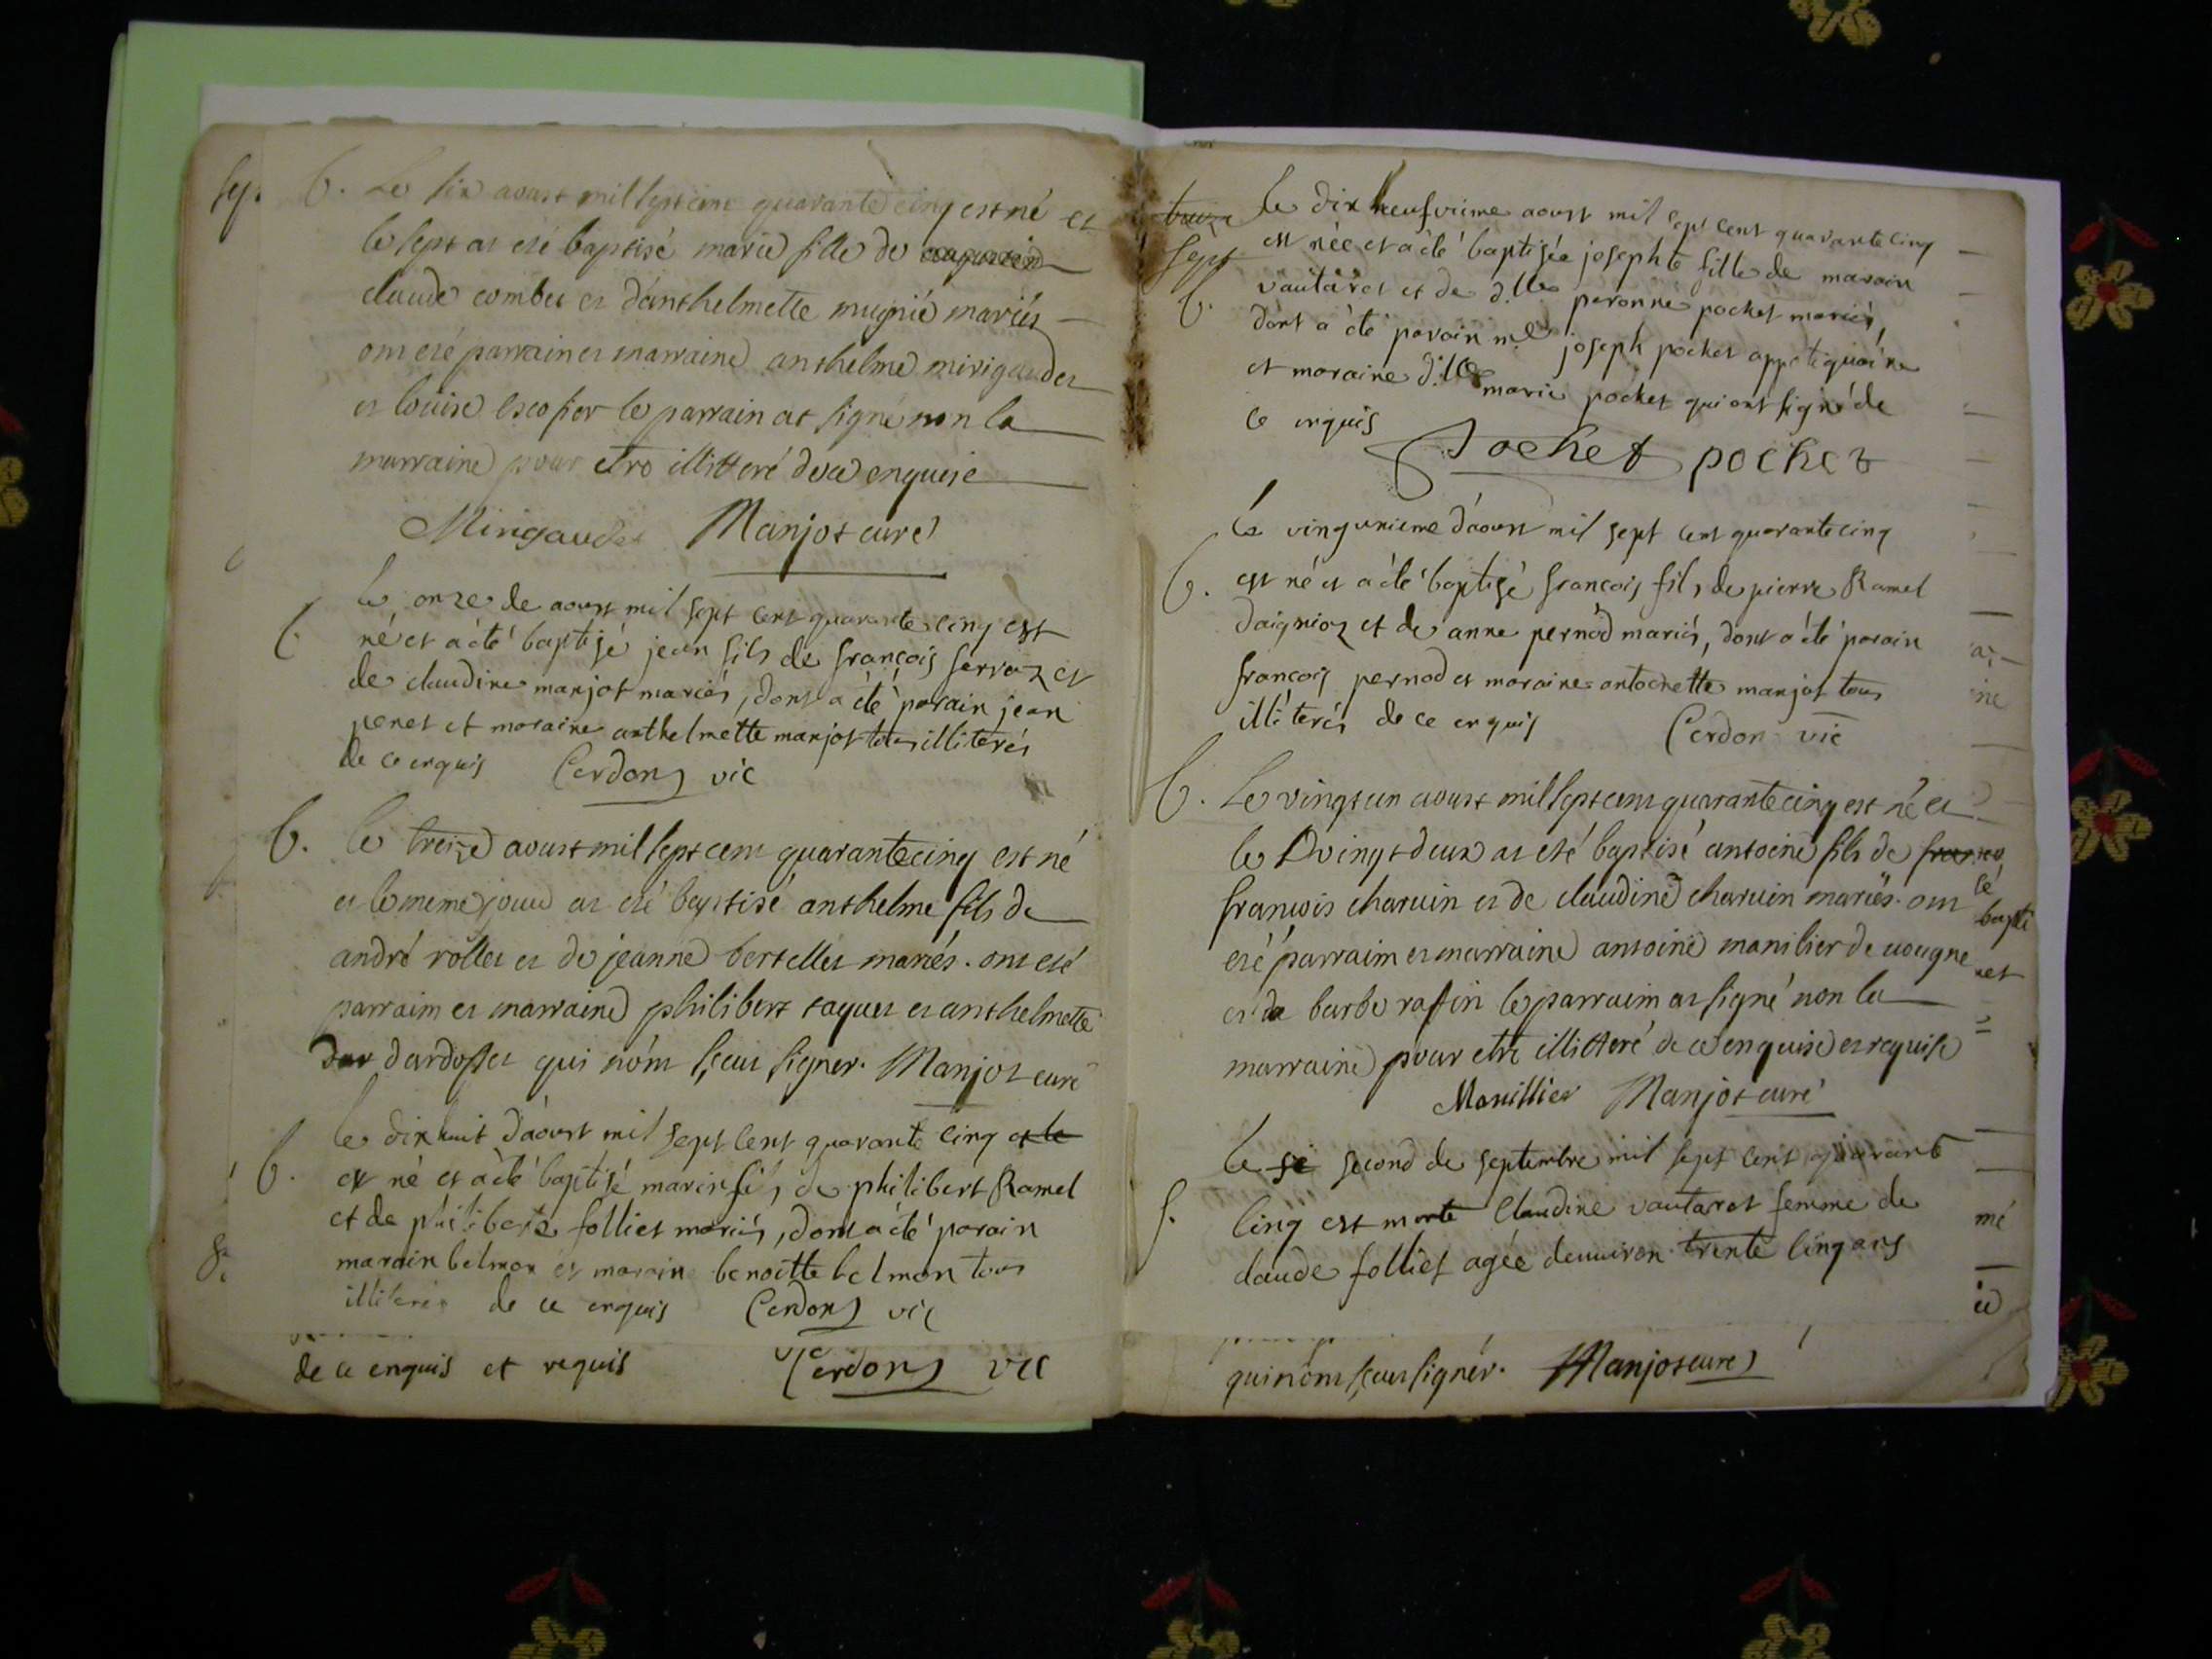 b. Le six aoust mil sept cent quarante cinq est né et
le sept at eté baptisé marie fille de
claude combet et d'anthelmette mugnié mariés
ont eté parrain et marraine anthelme mirigaudet
et louise escofier le parrain at signé non la
marraine pour etre illitteré de ce enquise
Mirigaudet Manjot curé
le onze de aoust mil sept cent quarante cinq est
né et a été baptisé jean fils de françois servoz et
de claudine manjot mariés, dont a été parain jean
penet et moraine anthelmette manjot tous illiterés
de ce enquis Cerdon vic
b. le treize aoust mil sept cent quarante cinq est né
et le meme jour at eté baptisé anthelme fils de
andré rollet et de jeanne bertellet mariés. ont eté
parraim et marraine philibert taquet et anthelmette
dar dardosset qui n'ont sçeut signer. Manjot curé
le dix huit d'aoust mil sept cent quarante cinq et le
b. est né et a été baptisé marin fils de philibert Ramel
et de philiberte folliet mariés, dont a été parain
marain belmon et moraine benoitte belmon tous
illiterés de ce enquis Cerdon vic
de ce enquis et requis Cerdon vic
treize
sept
le dix neufvieme aoust mil sept cent quarante cinq
est née et a été baptisée josephte fille de marain
b. vautaret et de d.lle peronne pochet mariés,
dont a été parain m.e joseph pochet appotiquaire
et moraine d.lle marie pochet qui ont signé de
ce enquis
Pochet pochet
le vingunieme d'aoust mil sept cent quarante cinq
b. est né et a été baptisé françois fils de pierre Ramel
daignoz et de anne pernod mariés, dont a été parain
françois pernod et moraine antoenette manjot tous
illiterés de ce enquis Cerdon vic
b. Le vingt un aoust mil sept cent quarante cinq est né et
le vingt deux at eté baptisé antoine fils de
françois charvin et de claudine charvin mariés. ont
eté parraim et marraine antoine manilier de vougne
et de barbe raffin le parraim at signé non la
marraine pour etre illitteré de ce enquise et requise
Manillier Manjot curé
le se second de septembre mil sept cent quarante
s. cinq est morte Claudine vautaret femme de
claude folliet agée denviron trente cinq ans
qui n'ont sçeut signer. Manjot curé
né
bapti
et
mé